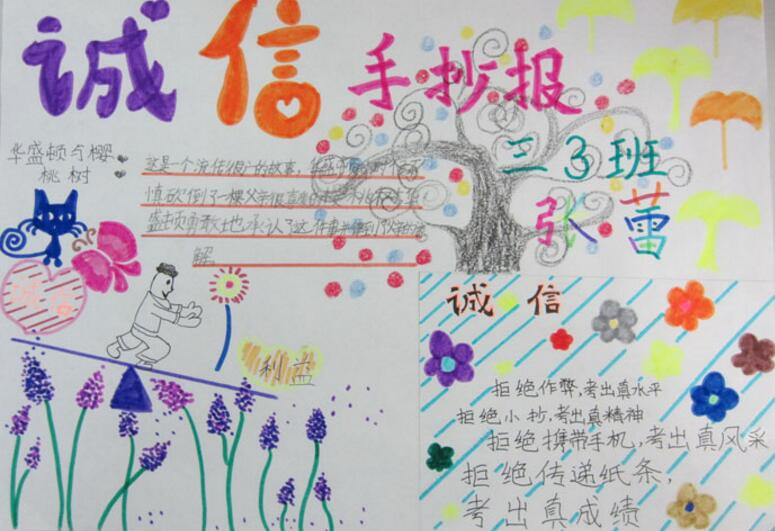 诚信手抄报
三3班
张蕾
华盛顿与樱
桃树
这是一个流传很广的故事，华盛
慎砍倒了一棵父亲很喜爱的
盛顿勇敢地承认了这件事并得到了父亲的
解
诚信
利益
诚 信
拒绝作弊,考出真水平
拒绝小抄,考出真精神
拒绝携带手机,考出真风采
拒绝传递纸条,
考出真成绩